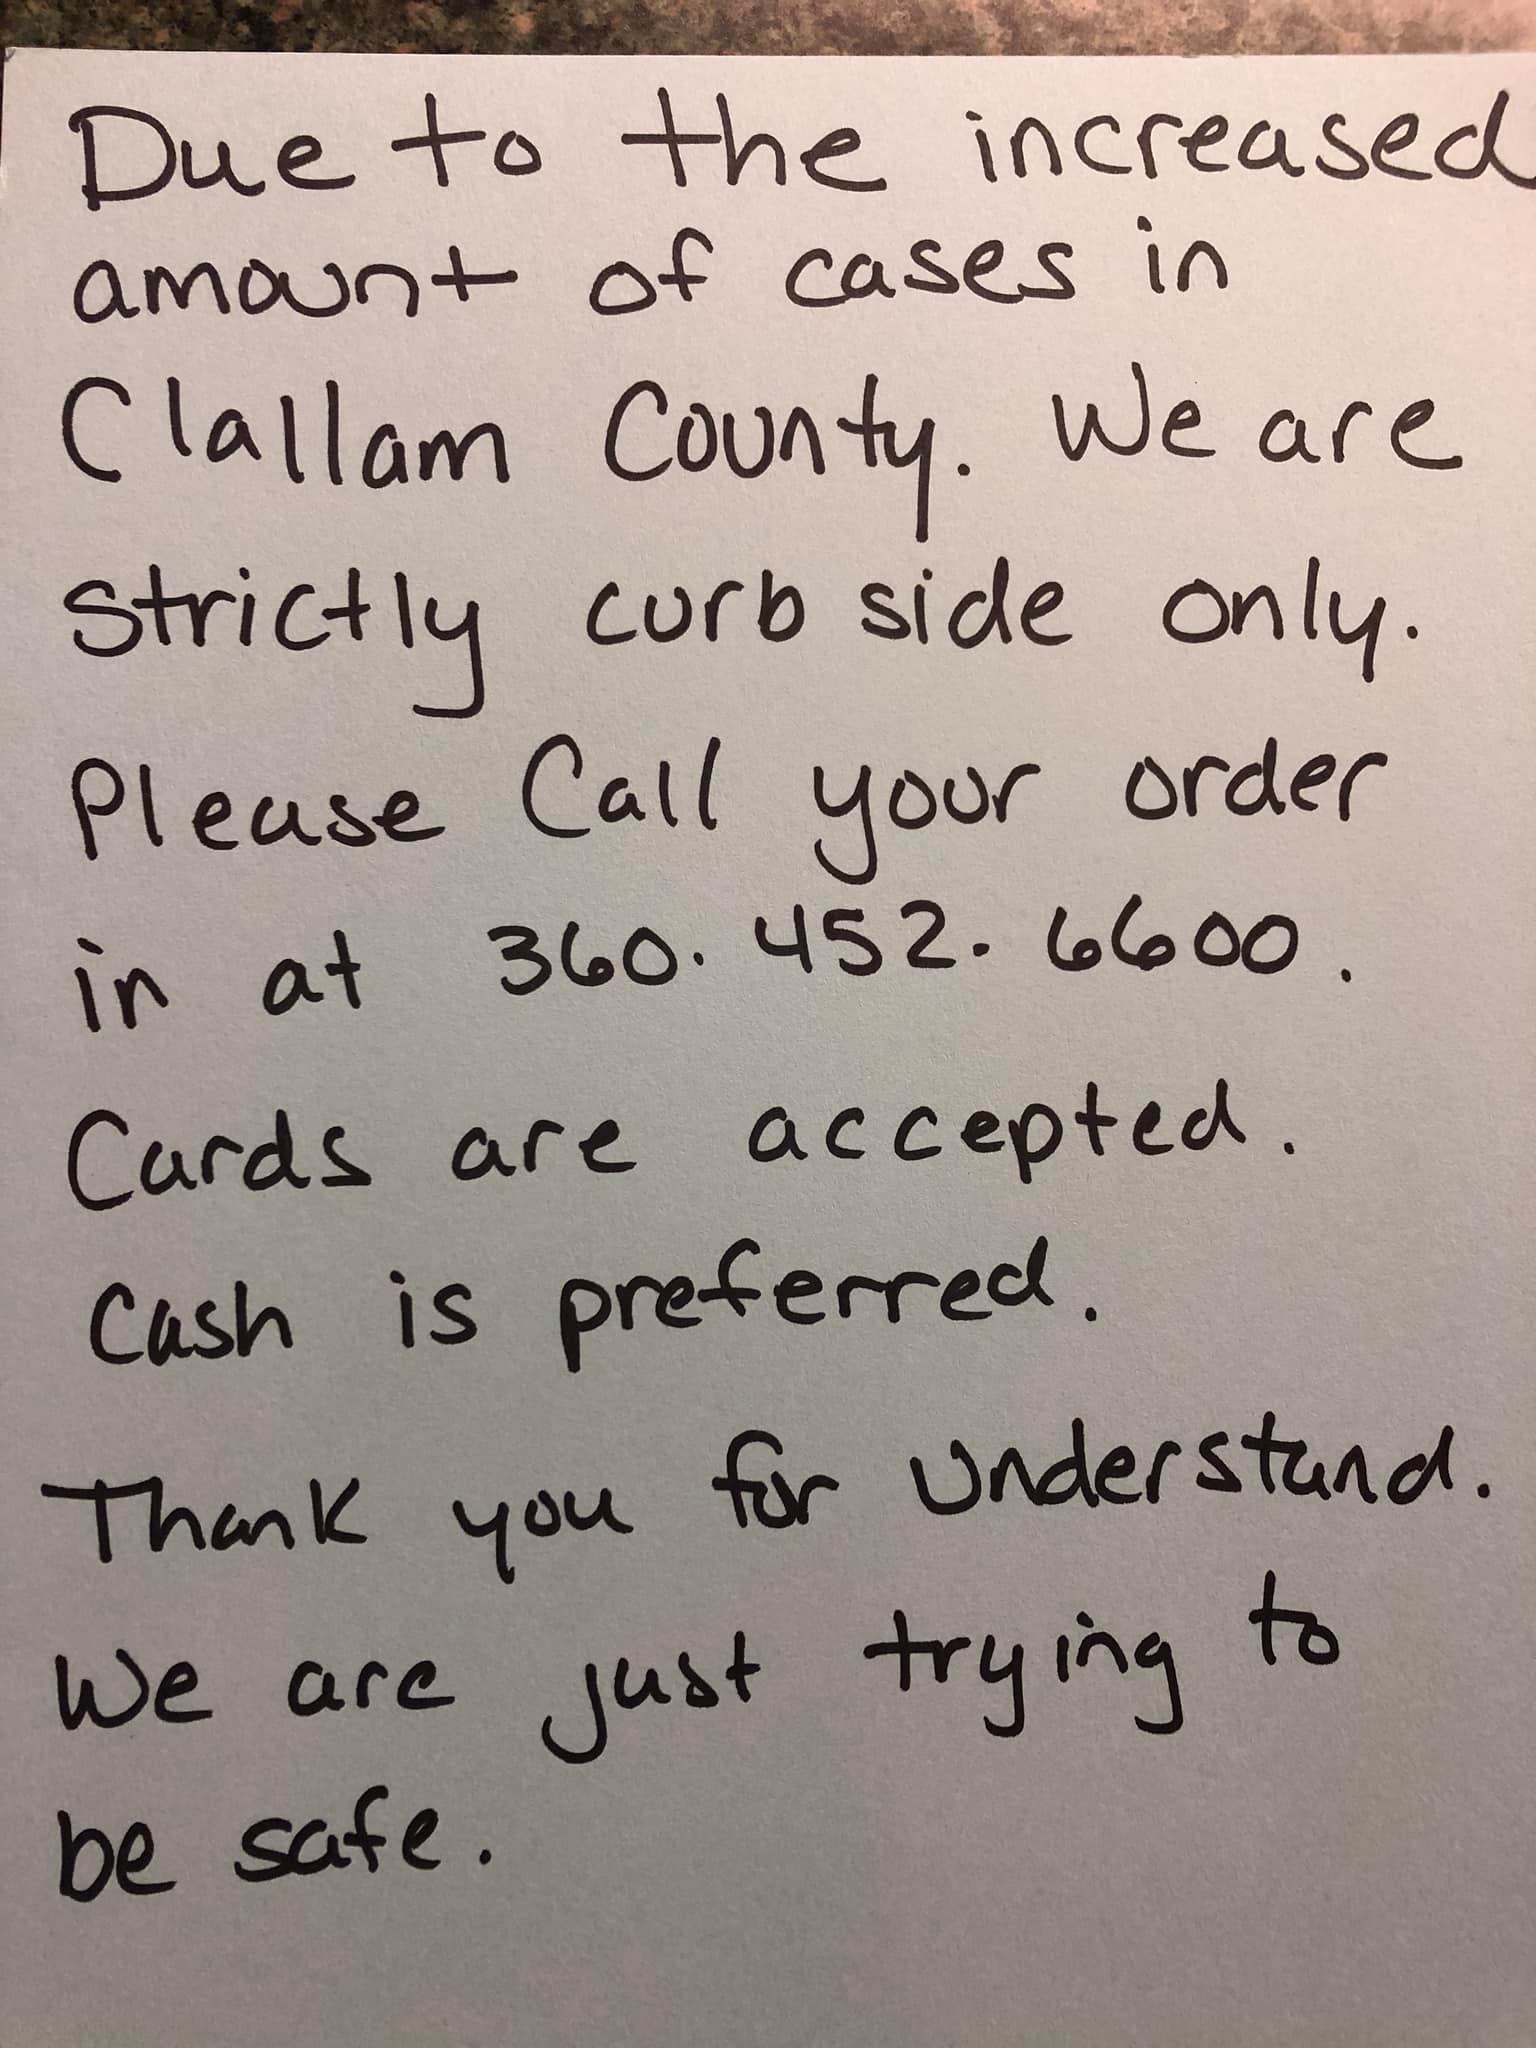 Due to the increased
amount of cases in
Clallam County. We are
strictly curb side only.
Please Call your order
in at 360. 452. 6600.
Cards are accepted.
Cash is preferred.
Thank you for understand.
We are just trying to
be safe.